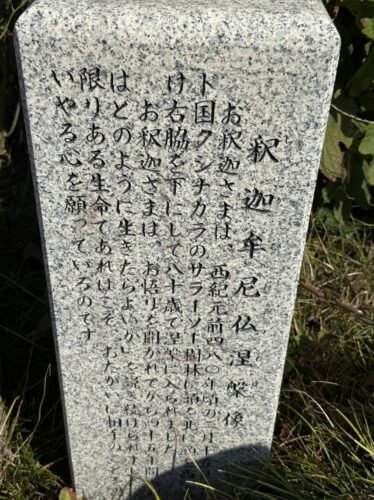 釈迦牟尼仏涅槃像
お釈迦さまは、西紀元前四八〇年頃の二月十
ト国クシナガラのサラーソー樹林に頭を北に
け右脇を下にして八十歳で涅槃に入られました
お釈迦さまは、お悟りを開かれてから四十五年間
はどのように生きたらよいかを説き続けられました
限りある生命であればこそ、おたがいに相手の
いやる心を願っているのです